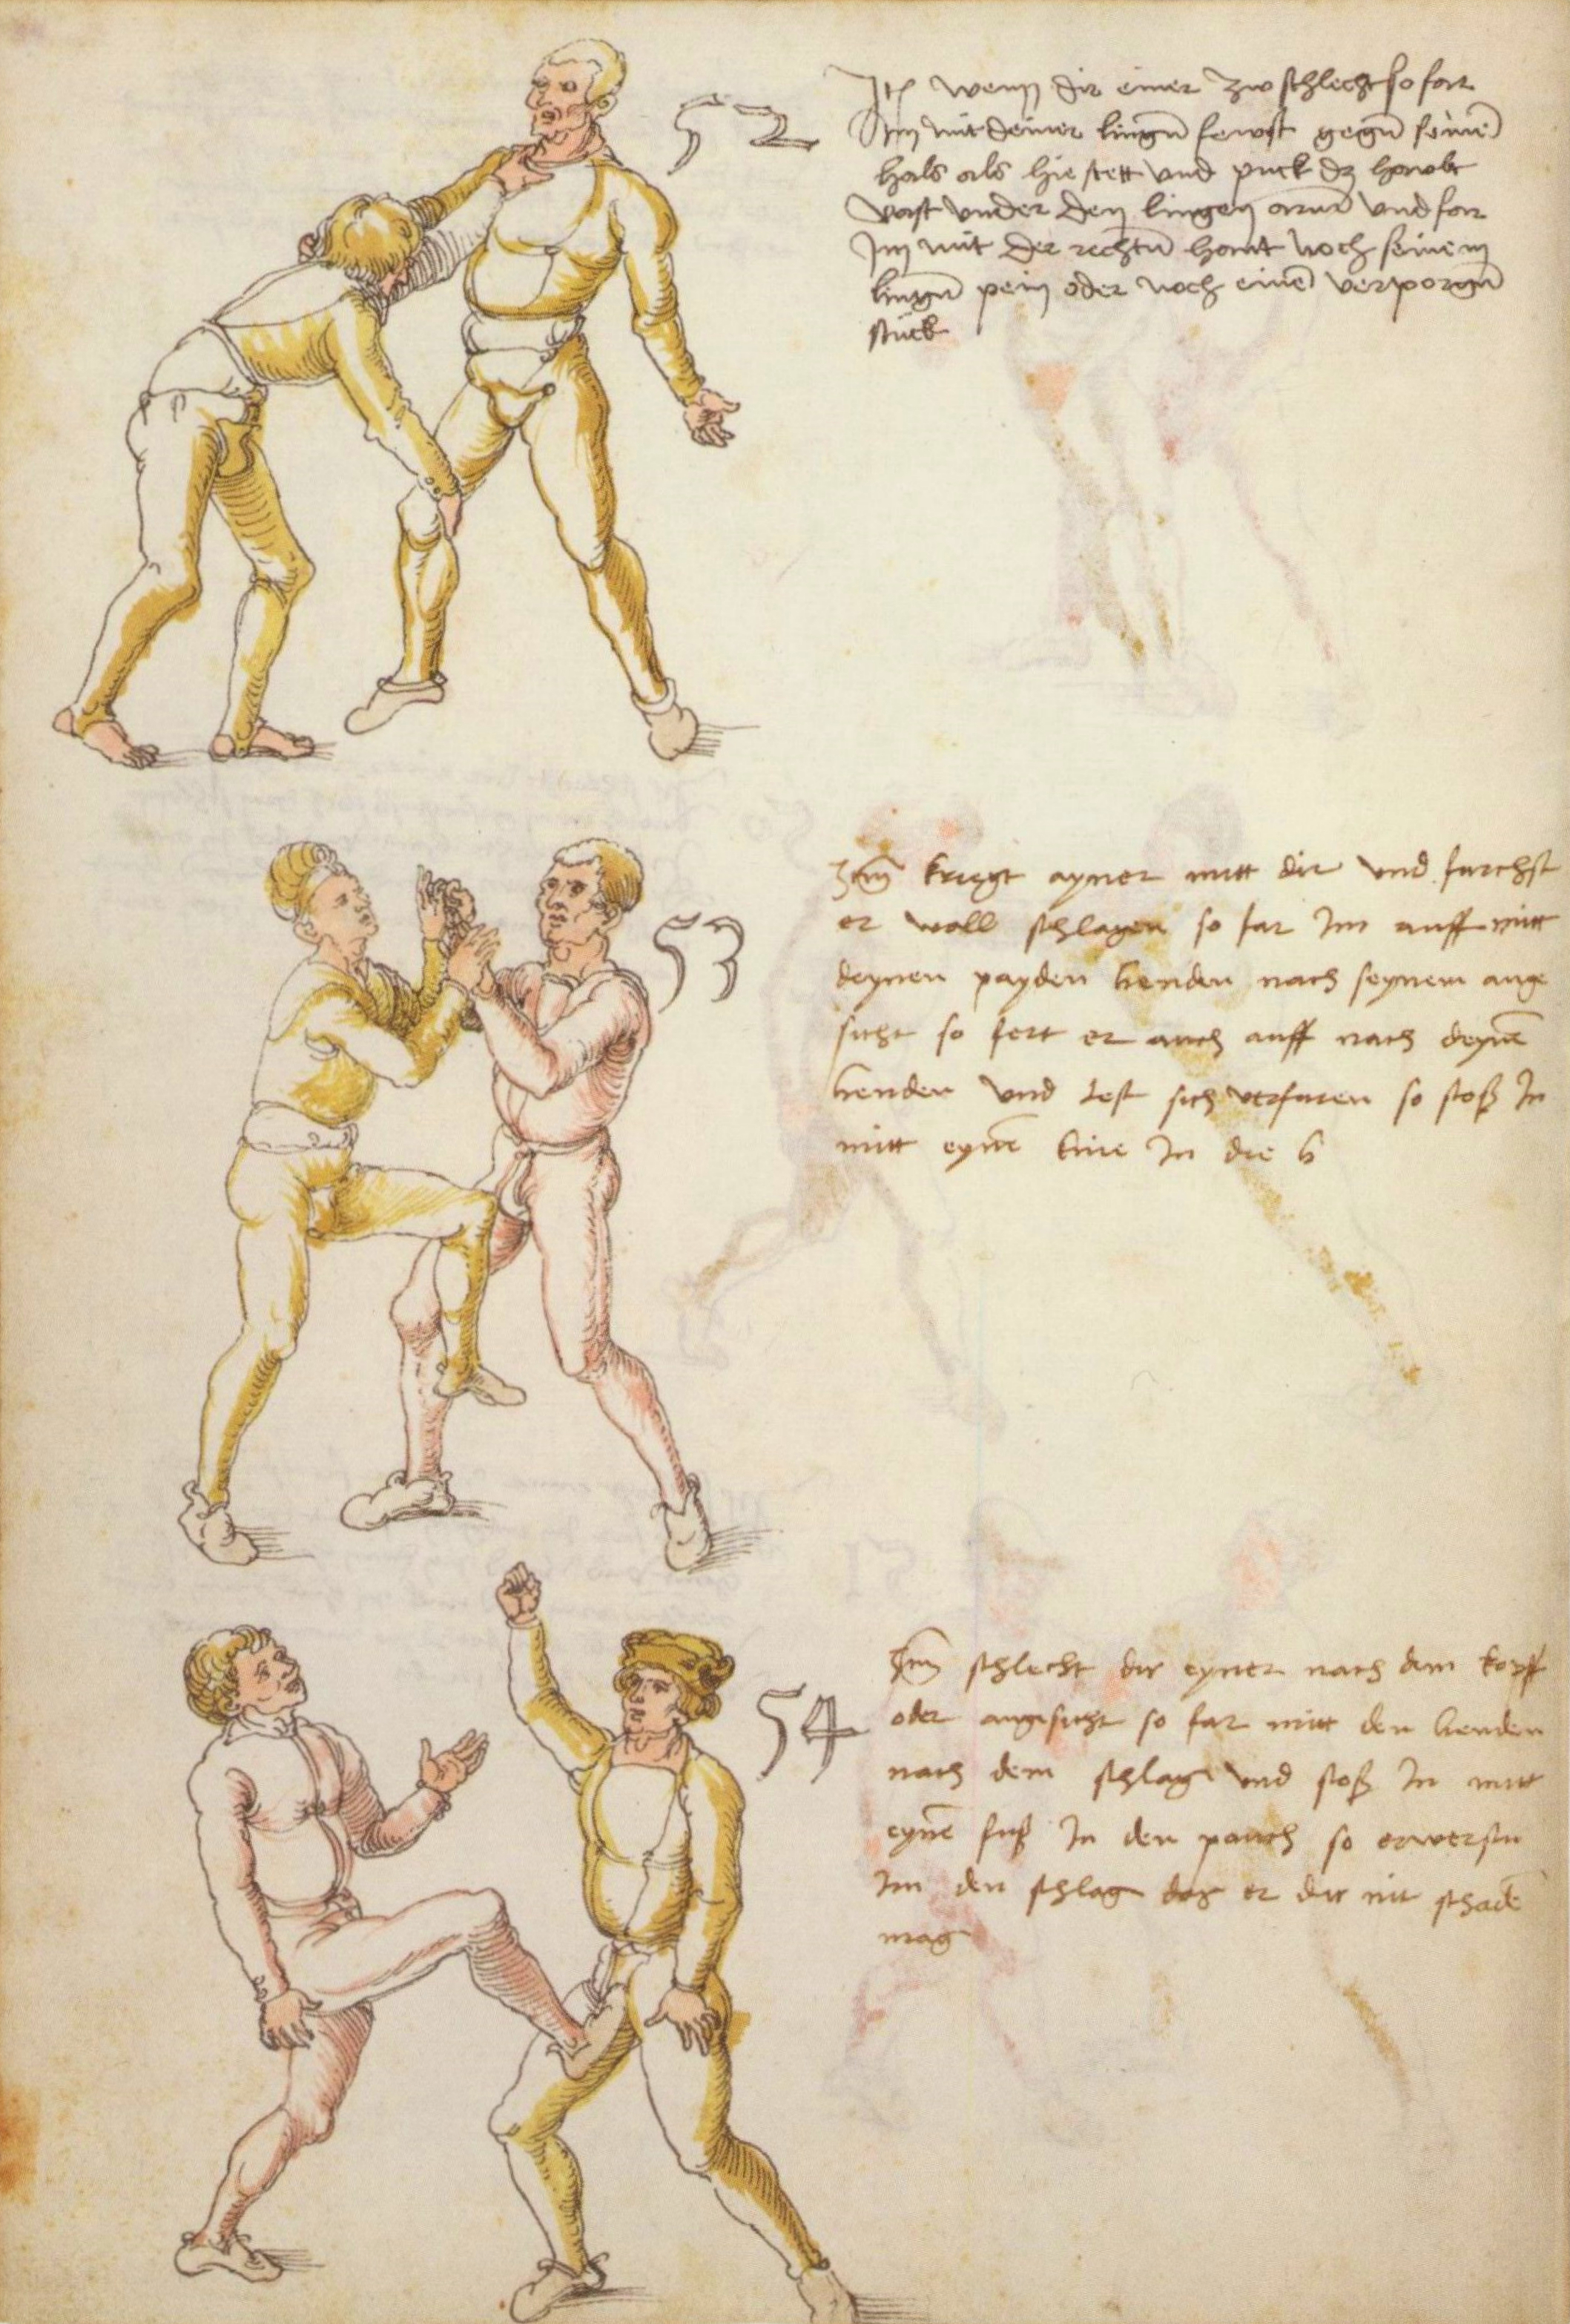 52
Itm wenn dir einer zw schlecht so far
Im mit deiner lingñ fewst gegñ seinẽ
hals als hie stett und puck dz hawbt
vast under den lingen arm und far
Im mit der rechtñ hant noch seinem
lingñ pein oder noch einẽ verporgñ
stuck
53
Itm kriegt ayner mitt dir und furchst
er woll schlagen so far Im auff mitt
deynen payden henden nach seynem ange
sicht so fert er auch auff nach deynẽ
henden und lest sich verfuren so stoß In
mitt eynẽ knie In die h
54
Itm schlecht dir eyner nach dem kopff
oder angesicht so far mitt den henden
nach dem schlag und stoß In mitt
eynẽ fuß In den pauch so erwerstu
Im den schlag das er dir nit schadẽ
mag